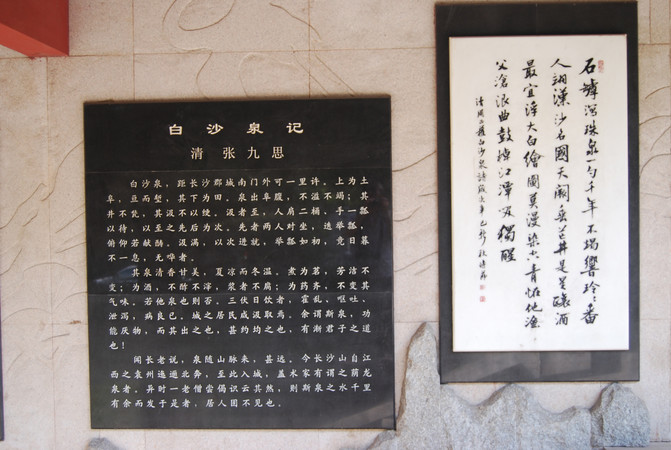 白沙泉记
清 张九思
白沙泉，距长沙郡城南门外可一里许。上为土
阜，豆而堑，其下以石。泉出阜腹，不溢不竭；其
井不甃，其汲不以绠。汲者至，人肩二桶，手一瓢
以待，以至之先后为次。先者两人对坐，迭举瓢，
俯仰若献酬。汲满，以次进就，举瓢如初，竟日暮
不一息，无哗者。
其泉清香甘美，夏凉而冬温。煮为茗，芳洁不
变；为酒，不酢不滓，浆者不腐；为药齐，不变其
气味。若他泉也则否。三伏日饮者，霍乱、呕吐、
泄泻，病良已。城之居民咸汲取焉，余谓斯泉，功
能厌物，而其出之也，甚约均之也，有渐君子之道
也！
闻长老说，泉随山脉来，甚远。今长沙山自江
西之袁州迤逦北奔，至此入城，盖术家所谓之荫龙
泉者。异时一老僧尝偈识云其然，则斯泉之水千里
有余而发于是者，居人固不见也。
石罅泻珠泉一勺千年不竭响玲玲番
人湖汉沙名国天阙
最宜浮大白绘图莫漫染丹青怕他渔
父沧浪曲鼓棹江潭唤独醒